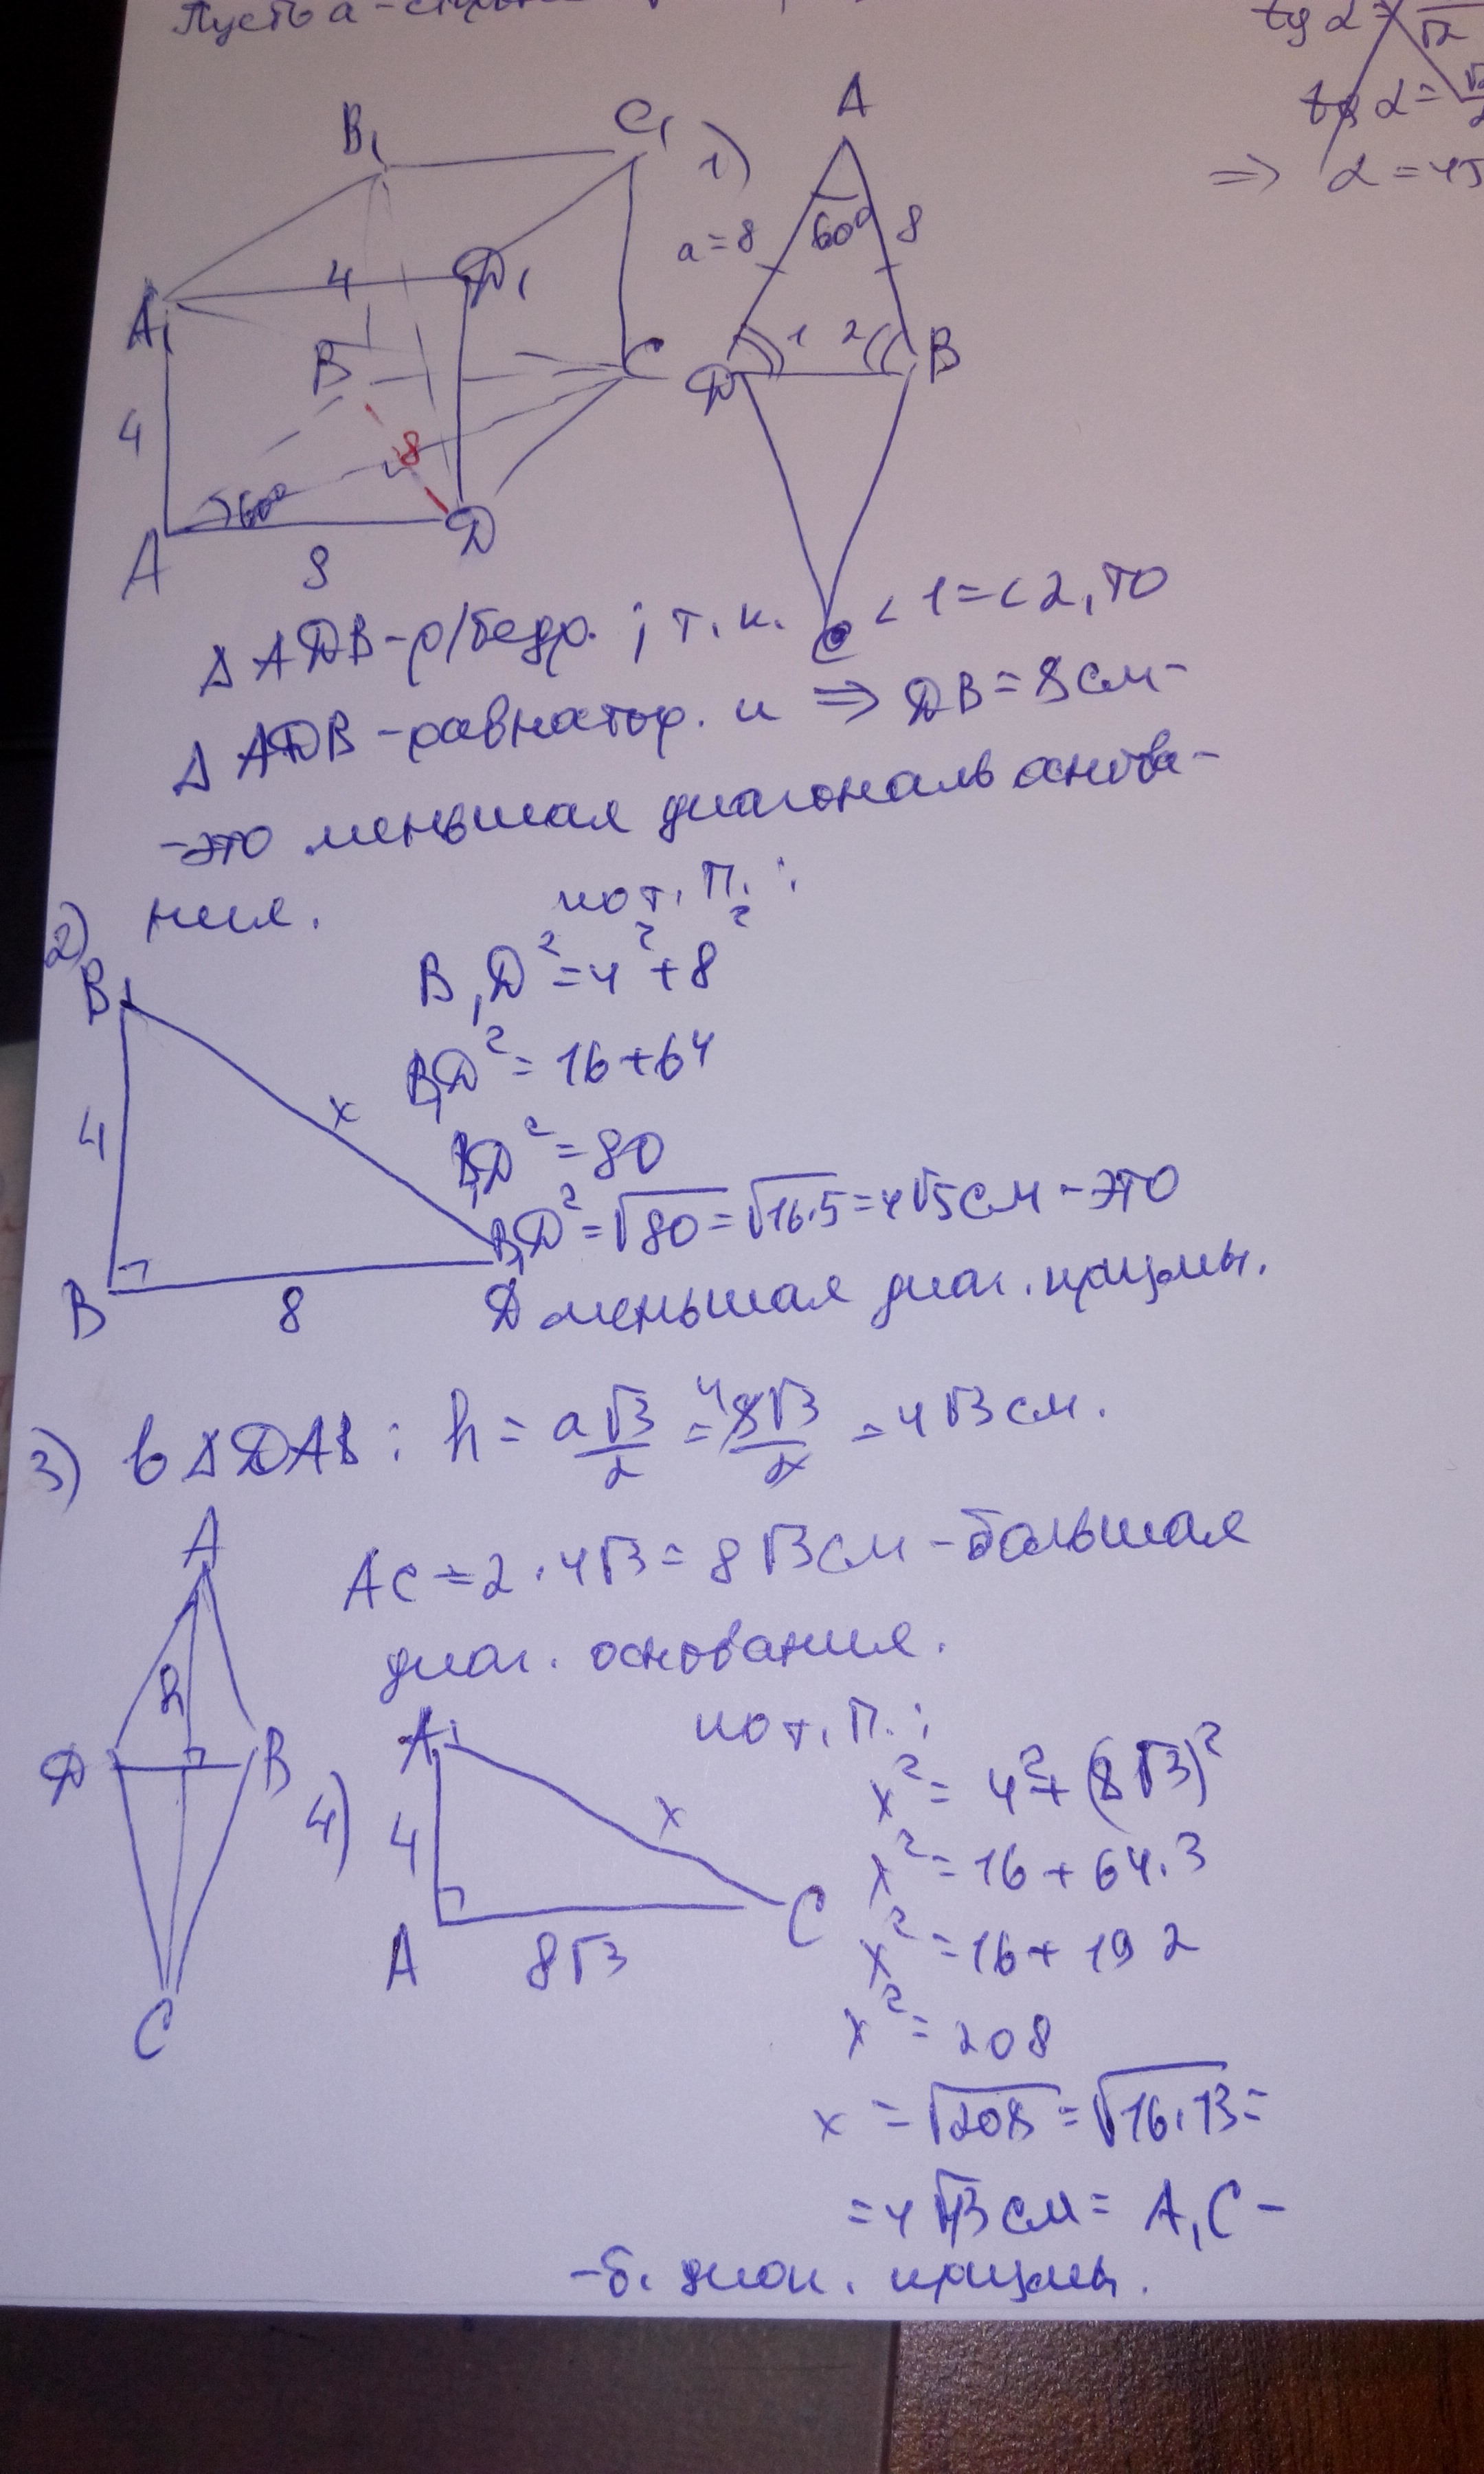 Пусть а -
tg α = √2
tg α =
⇒ α = 45
B₁
C₁
A₁
4
D₁
4
B
C
8
60°
A
8
D
1)
A
60°
a=8
8
1
2
D
B
C
Δ АДВ - р/бедр. ; т.к. < 1 = < 2, то
Δ АДВ - равностор. и ⇒ ДВ = 8 см -
- это меньшая диагональ основа-
ния.
2)
по т. П. :
B₁
4
x
B
8
Д
B₁Д² = 4² + 8²
B₁Д² = 16 + 64
B₁Д² = 80
B₁Д² = √80 = √16·5 = 4√5 см - это
меньшая диаг. призмы.
3) в Δ ДАВ : h = a√3/2 = 8√3/2 = 4√3 см.
4
A
h
Д
B
C
AC = 2 · 4√3 = 8√3 см - большая
диаг. основания.
4)
A₁
4
x
A
8√3
C
по т. П. :
x² = 4² + (8√3)²
x² = 16 + 64·3
x² = 16 + 192
x² = 208
x = √208 = √16·13 =
= 4√13 см = A₁C -
- б. диаг. призмы.